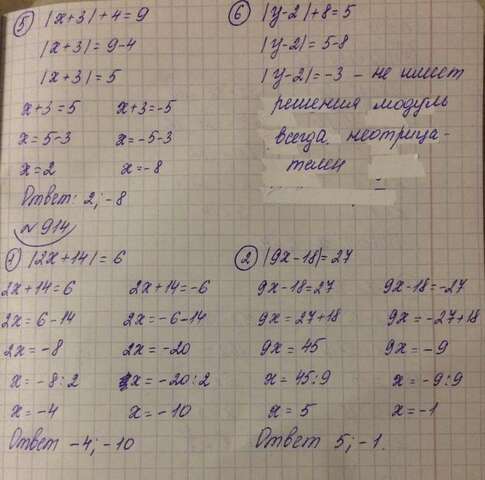 5) |x+3|+4=9
|x+3|=9-4
|x+3|=5
x+3=5 x+3=-5
x=5-3 x=-5-3
x=2 x=-8
Ответ: 2; -8
6) |y-2|+8=5
|y-2|=5-8
|y-2|=-3 - не имеет
решения модуль
всегда неотрица-
телен
№914
1) |2x+14|=6
2x+14=6 2x+14=-6
2x=6-14 2x=-6-14
2x=-8 2x=-20
x=-8:2 x=-20:2
x=-4 x=-10
Ответ -4; -10
2) |9x-18|=27
9x-18=27 9x-18=-27
9x=27+18 9x=-27+18
9x=45 9x=-9
x=45:9 x=-9:9
x=5 x=-1
Ответ 5; -1.